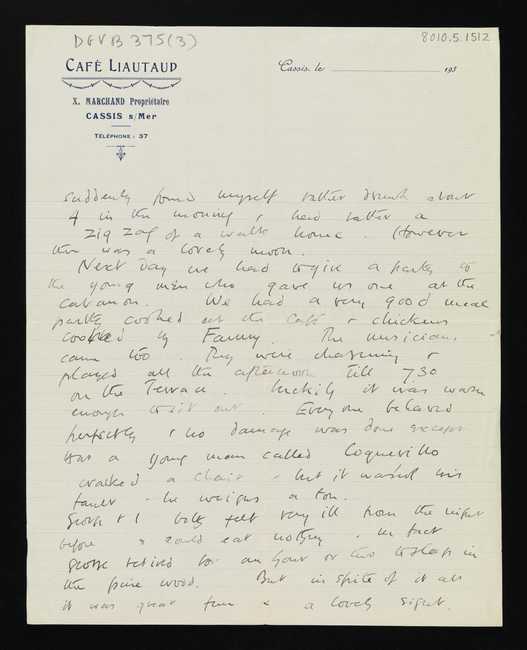 DGVB 375(3)
8010.5.1512
CAFÉ LIAUTAUD
Cassis, le 193
X. MARCHAND Propriétaire
CASSIS s/Mer
TÉLÉPHONE : 37
suddenly found myself rather drunk about
4 in the morning & had rather a
zig zag of a walk home. (However
there was a lovely moon.
Next day we had to give a party to
the young men who gave us one at the
cabanon. We had a very good meal
partly cooked at the Café & chickens
cooked by Fanny. The musicians
came too. They were charming &
played all the afternoon till 7.30
on the Terrace. Luckily it was warm
enough to sit out. Everyone behaved
perfectly & no damage was done except
that a young man called Coquevillo
cracked a chair - but it wasn't his
fault - he weighs a ton.
George & I both felt very ill from the night
before & could eat nothing. In fact
George retired for an hour or two to sleep in
the pine wood. But in spite of it all
it was great fun & a lovely sight.